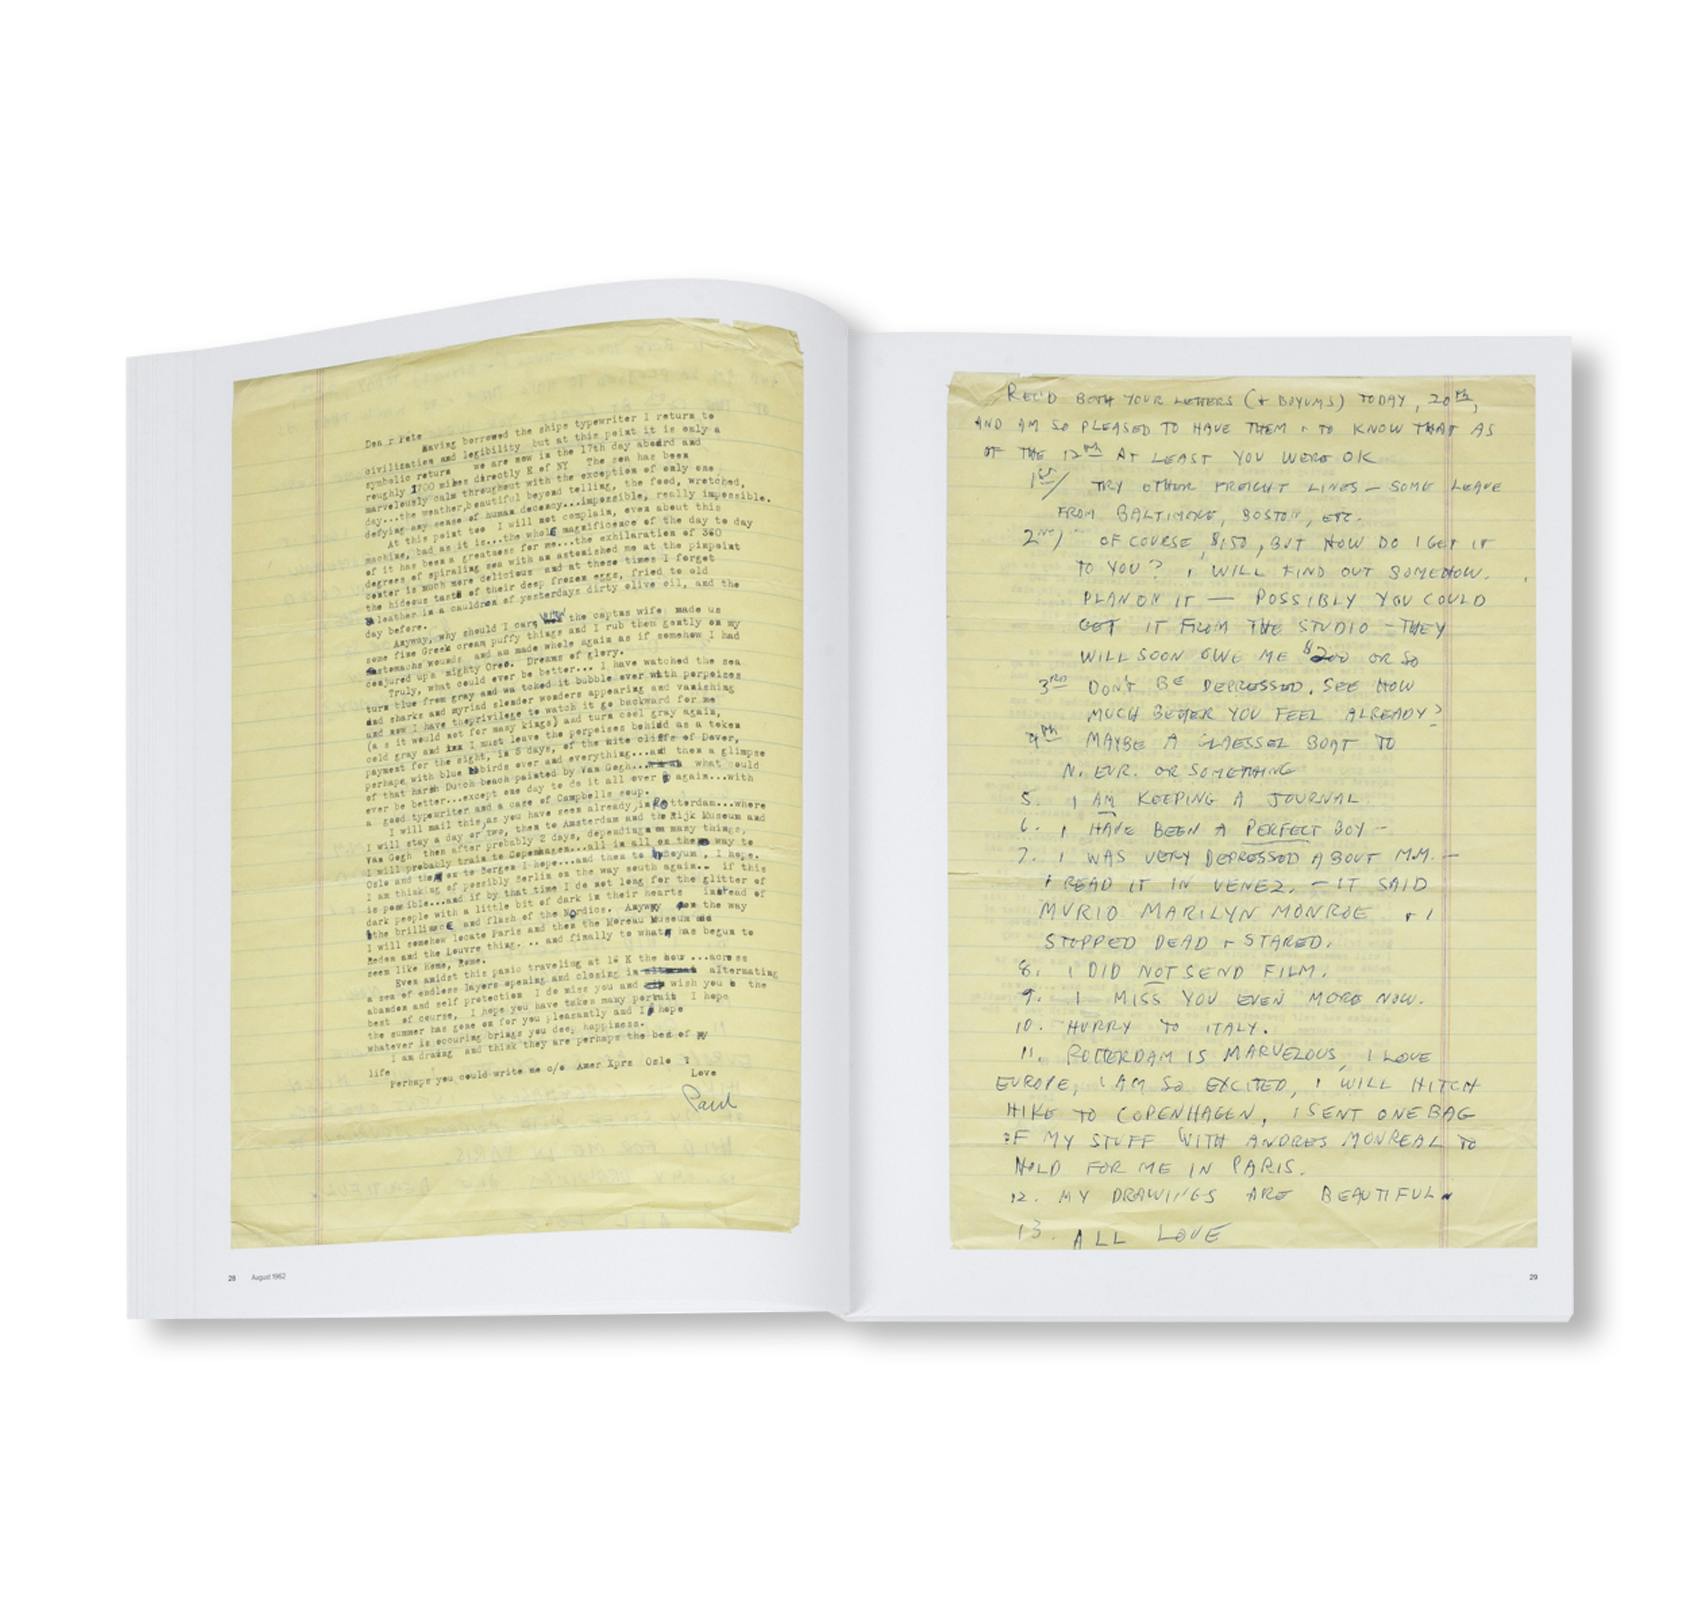 Dear Pete
Having borrowed the ships typewriter I return to
civilization and legibility but at this point it is only a
symbolic return we are now in the 17th day aboard and
roughly 1700 miles directly E of NY The sea has been
marvelously calm throughout with the exception of only one
day...the weather,beautiful beyond telling, the food, wretched,
defying any sense of human decency...impossible, really impossible.
At this point too I will not complain, even about this
machine, bad as it is...the whole magnificence of the day to day
of it has been a greatness for me...the exhilaration of 360
degrees of spiraling sea with an astonished me at the pinpoint
center is much more delicious and at these times I forget
the hideous taste of their deep frozen eggs, fried to old
leather in a cauldron of yesterdays dirty olive oil, and the
day before.
Anyway, why should I care the captns wife made us
some fine Greek cream puffy things and I rub them gently on my
stomachs wounds and am made whole again as if somehow I had
conjured up a mighty Oreo. Dreams of glory.
Truly, what could ever be better... I have watched the sea
turn blue from gray and wa tched it bubble over with porpoises
and sharks and myriad slender wonders appearing and vanishing
and now I have theprivilege to watch it go backward for me
(a s it would not for many kings) and turn cool gray again,
cold gray and I must leave the porpoises behind as a token
payment for the sight, in 5 days, of the wite cliffs of Dover,
perhaps with blue birds over and everything...and then a glimpse
of that harsh Dutch beach painted by Van Gogh... what could
ever be better...except one day to do it all over again...with
a good typewriter and a case of Campbells soup.
I will mail this, as you have seen already, in Rotterdam...where
I will stay a day or two, then to Amsterdam and the Rijk Museum and
Van Gogh then after probably 2 days, depending on many things,
I will probably train to Copenhagen...all in all on the way to
Oslo and then on to Bergen I hope...and then to Boyum, I hope.
I am thinking of possibly Berlin on the way south again.. if this
is possible...and if by that time I do not long for the glitter of
dark people with a little bit of dark in their hearts instead of
the brilliance and flash of the Nordics. Anyway on the way
I will somehow locate Paris and then the Moreau Museum and
Redon and the Louvre thing. .. and finally to what has begun to
seem like home, Rome.
Even amidst this panic traveling at 16 K the hour ...across
a sea of endless layers opening and closing in alternating
abandon and self protection I do miss you and wish you the
best of course, I hope you have taken many portrait I hope
the summer has gone on for you pleasantly and I hope
whatever is occuring brings you deep happiness.
I am drawing and think they are perhaps the best of my
life
Perhaps you could write me c/o Amer Xprs Oslo ?
Love
Paul
28 August 1962
REC'D BOTH YOUR LETTERS (+ BOYUMS) TODAY, 20TH,
AND AM SO PLEASED TO HAVE THEM + TO KNOW THAT AS
OF THE 12TH AT LEAST YOU WERE OK
1ST/ TRY OTHER FREIGHT LINES – SOME LEAVE
FROM BALTIMORE, BOSTON, ETC.
2ND) OF COURSE, $150, BUT HOW DO I GET IT
TO YOU? I WILL FIND OUT SOMEHOW.
PLAN ON IT — POSSIBLY YOU COULD
GET IT FROM THE STUDIO – THEY
WILL SOON OWE ME $200 OR SO
3RD DON'T BE DEPRESSED. SEE HOW
MUCH BETTER YOU FEEL ALREADY?
4TH MAYBE A BOAT TO
N. EUR. OR SOMETHING
5. I AM KEEPING A JOURNAL
6. I HAVE BEEN A PERFECT BOY –
7. I WAS VERY DEPRESSED ABOUT M.M. –
I READ IT IN VENEZ. – IT SAID
MURIO MARILYN MONROE + I
STOPPED DEAD + STARED.
8. I DID NOT SEND FILM.
9. I MISS YOU EVEN MORE NOW.
10. HURRY TO ITALY.
11. ROTTERDAM IS MARVELOUS, I LOVE
EUROPE, I AM SO EXCITED, I WILL HITCH
HIKE TO COPENHAGEN, I SENT ONE BAG
OF MY STUFF WITH ANDRES MONREAL TO
HOLD FOR ME IN PARIS.
12. MY DRAWINGS ARE BEAUTIFUL.
13. ALL LOVE
29